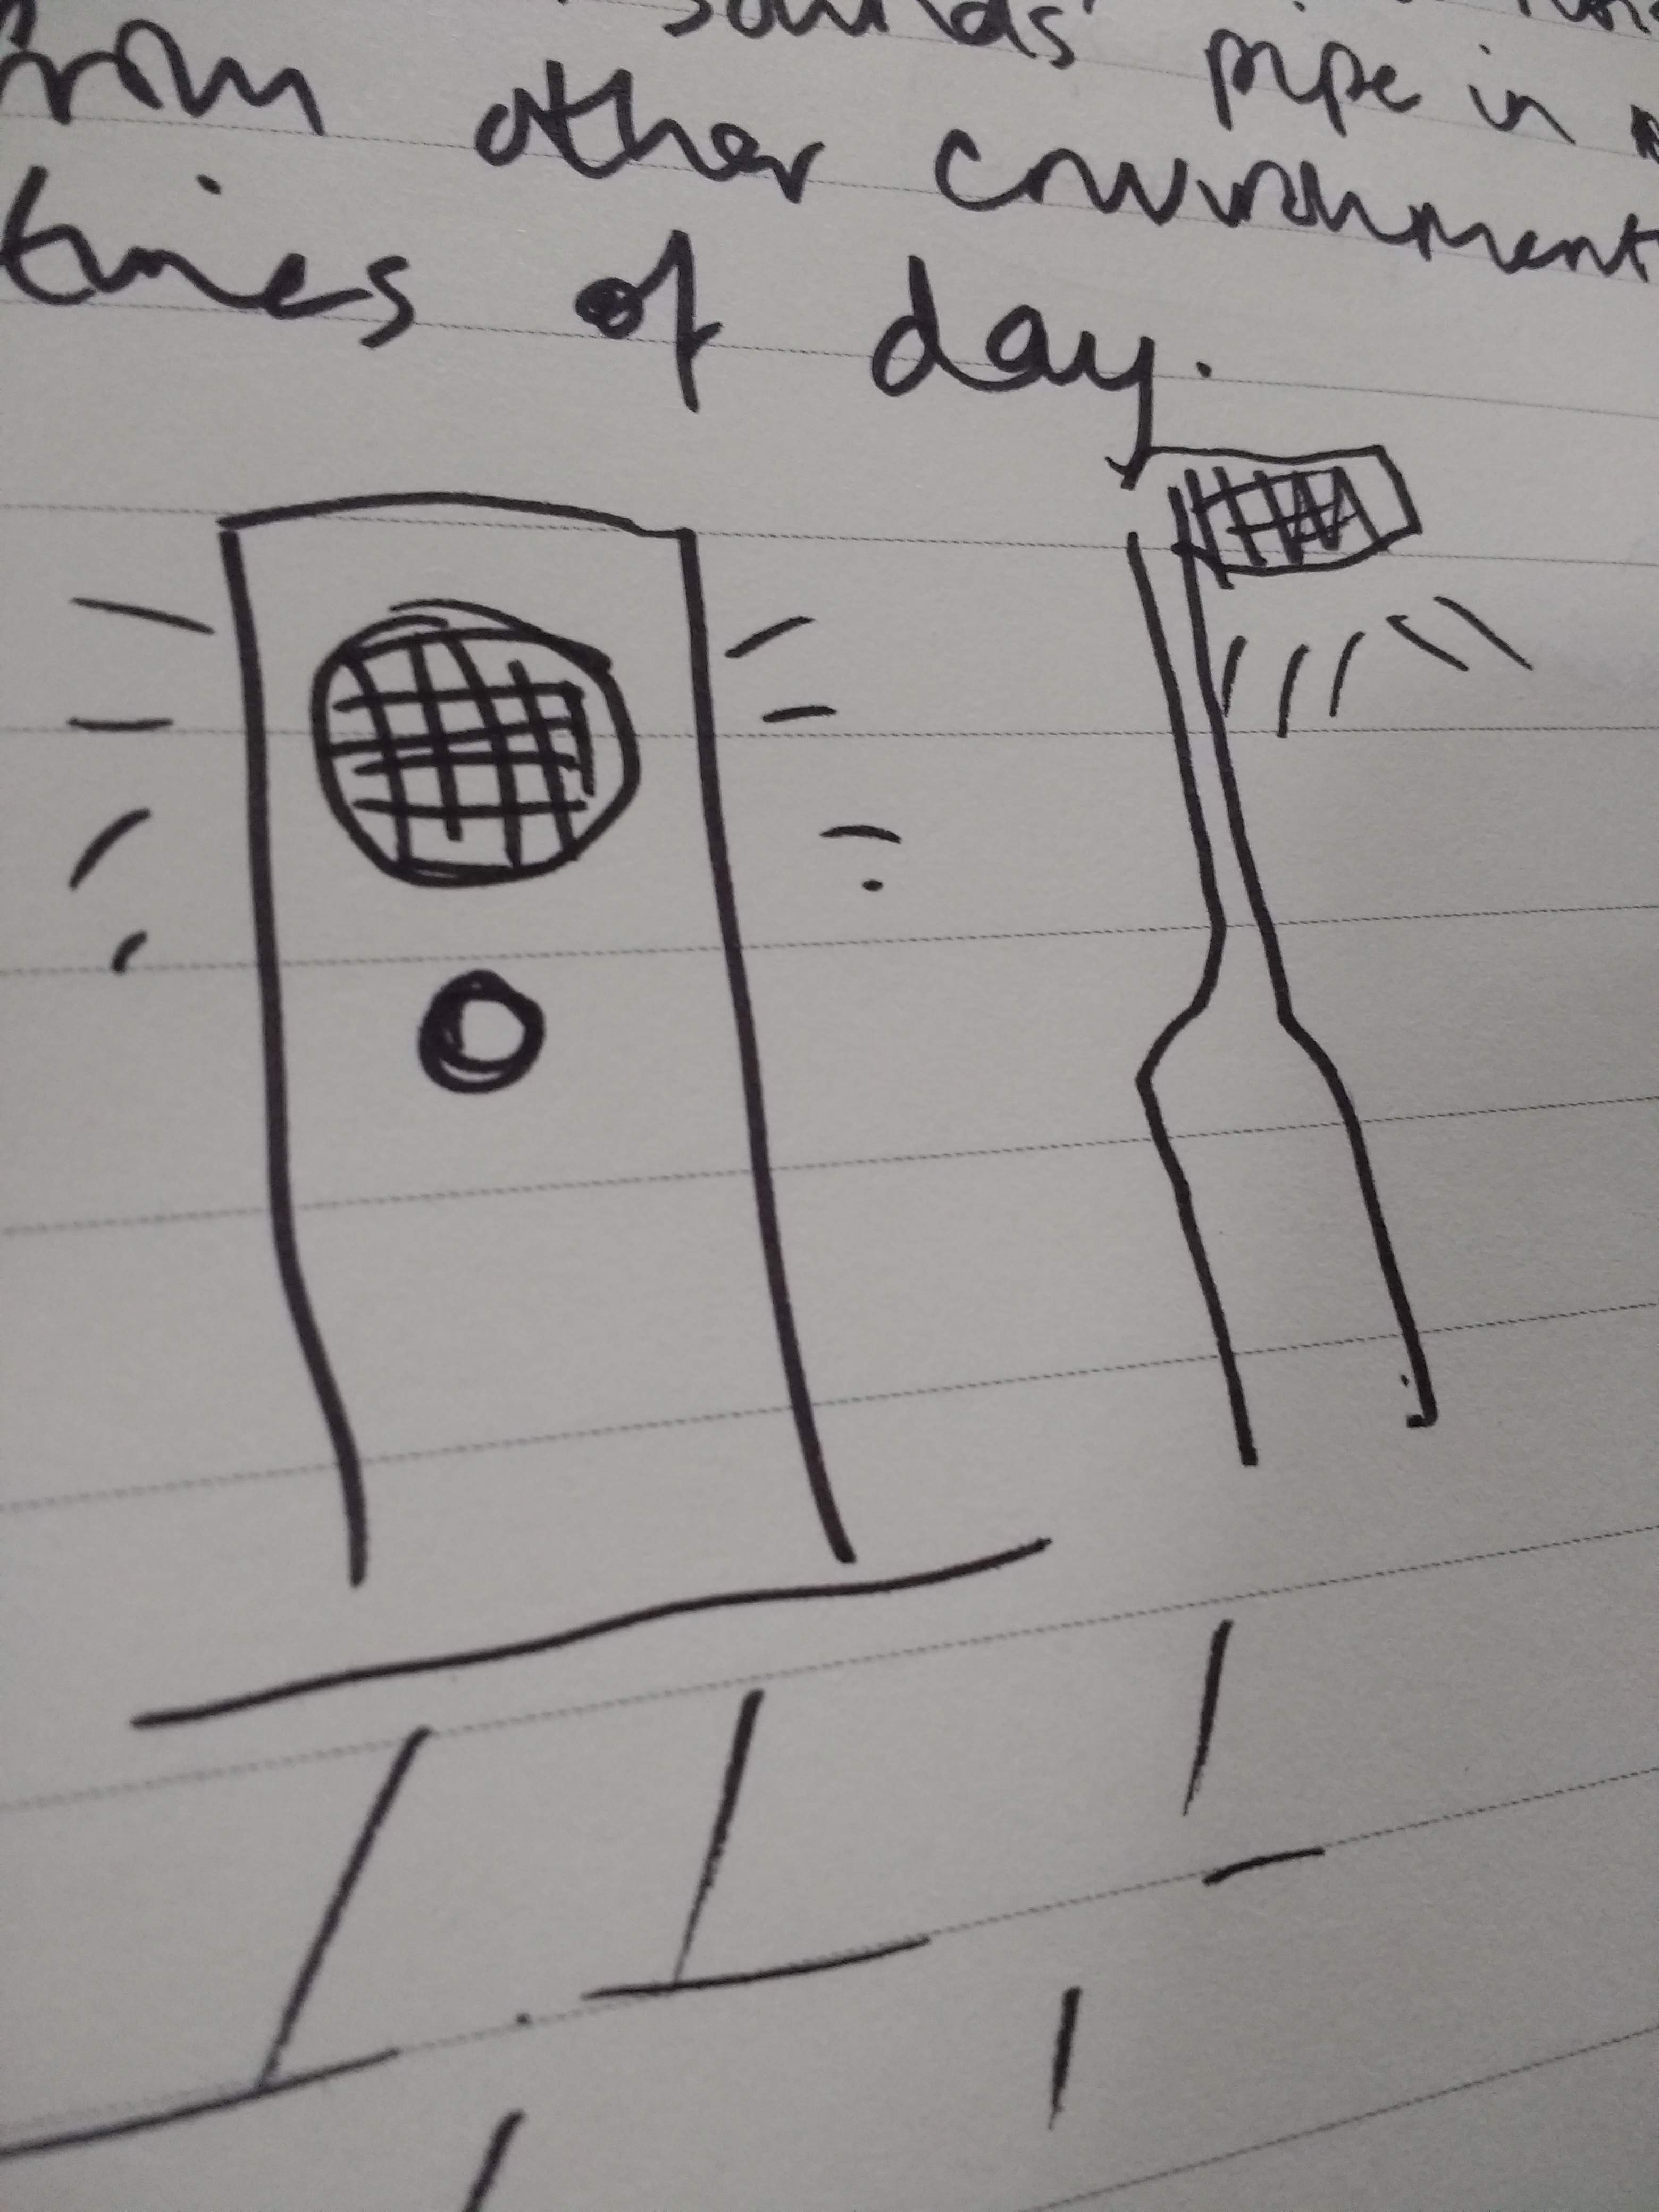 sounds pipe in
from other environment
times of day.